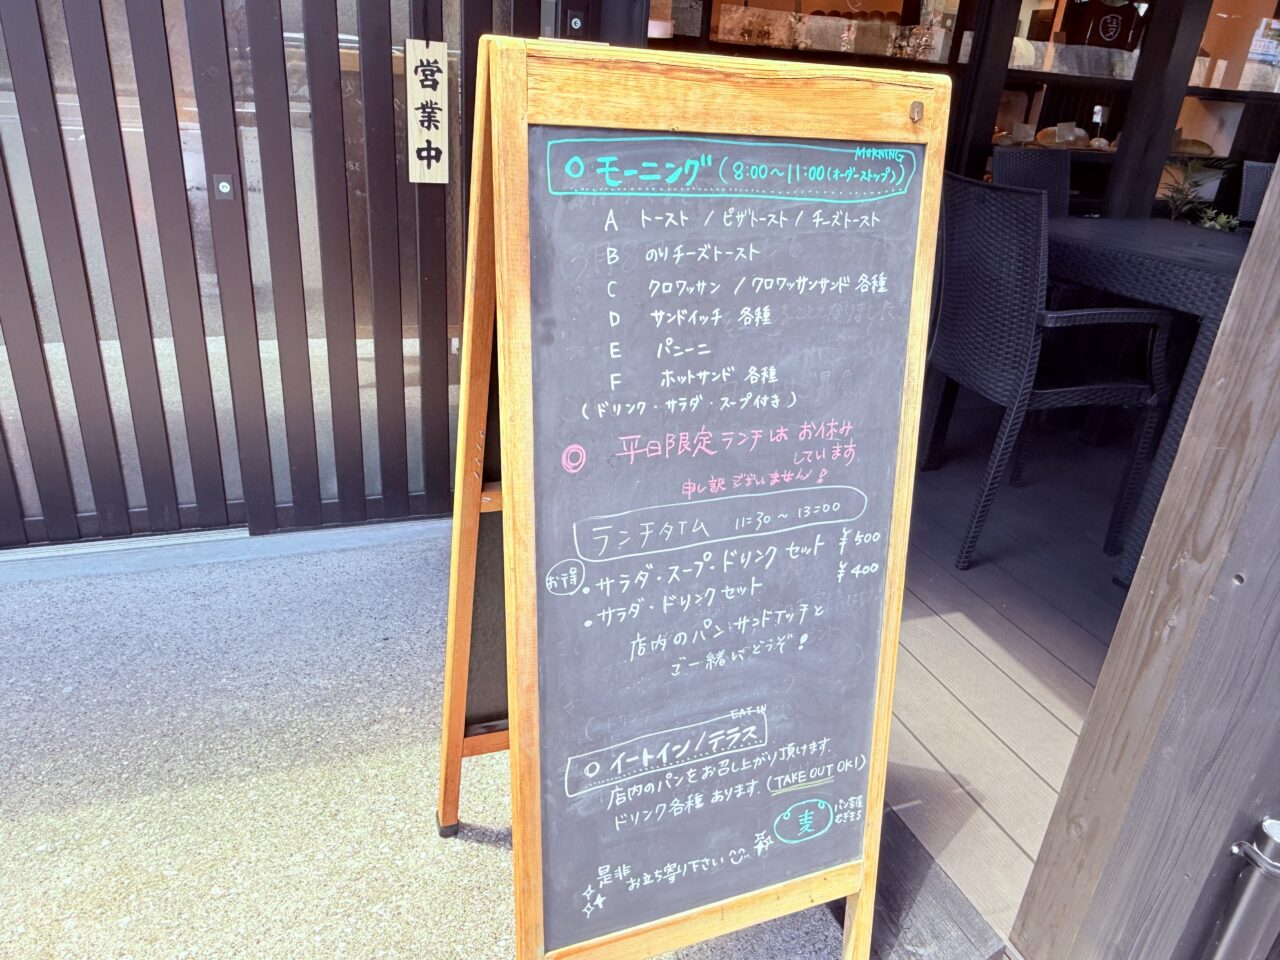 営業中
○ モーニング (8:00〜11:00(オーダーストップ)) MORNING
A トースト / ピザトースト / チーズトースト
B のりチーズトースト
C クロワッサン / クロワッサンサンド 各種
D サンドイッチ 各種
E パニーニ
F ホットサンド 各種
(ドリンク・サラダ・スープ付き)
◎ 平日限定ランチは お休み
しています
申し訳ございません!
ランチタイム 11:30〜13:00
お得 ・サラダ・スープ・ドリンク セット ¥500
・サラダ・ドリンクセット ¥400
店内のパン・サンドイッチと
ご一緒にどうぞ!
EAT IN
○ イートイン/テラス
店内のパンをお召し上がり頂けます.
ドリンク各種 あります. (TAKE OUT OK!)
麦
パン金屋
是非
お立ち寄り下さい